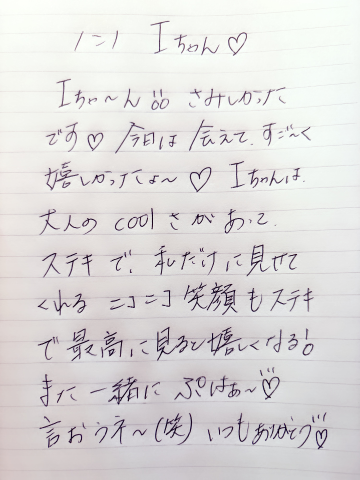 ハニハ Iちゃん♡
Iちゃ〜ん!!○○ さみしかった
です♡ 今日は 会えて、すご〜く
嬉しかったょ〜♡ Iちゃんは、
大人の coolさが あって、
ステキで、私だけに見せて
くれる ニコニコ笑顔もステキ
で 最高に見ると嬉しくなる!
また一緒に ぷはぁ〜♡
言おうネ〜(笑) いつもありがとう♡